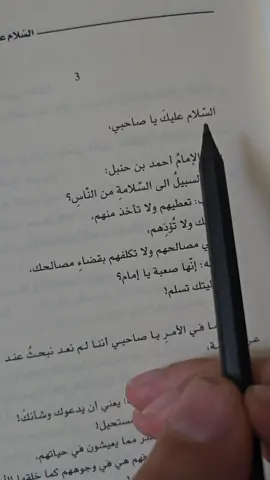 السّلام
3
السّلام عليكَ يا صاحبي،
الإمامُ احمد بن حنبل:
السبيلُ الى السّلامةِ من النّاسِ؟
تعطيهم ولا تأخذ منهم،
ولا تُؤذِهم،
مصالحهم ولا تكلفهم بقضاءِ مصالحك،
إنّها صعبة يا إمام؟
تسلم!
في الأمرِ يا صاحبي أننا لم نعد نبحثُ عند
يعني أن يدعوك وشأنكَ!
مما يعيشون في حياتهم،
هي في وجوههم كما خلقها